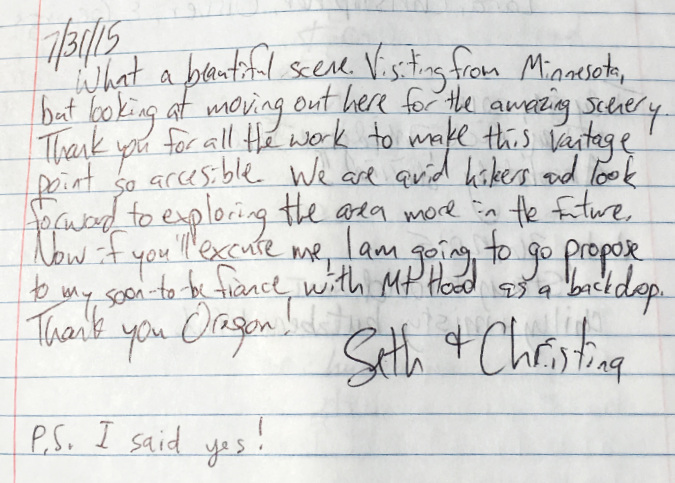 7/31/15
What a beautiful scene. Visiting from Minnesota,
but looking at moving out here for the amazing scenery.
Thank you for all the work to make this vantage
point so accesible. We are avid hikers and look
forward to exploring the area more in the future.
Now if you'll excuse me, I am going to go propose
to my soon-to-be fiance, with Mt Hood as a backdrop.
Thank you Oregon!
Seth & Christina
P.S. I said yes!